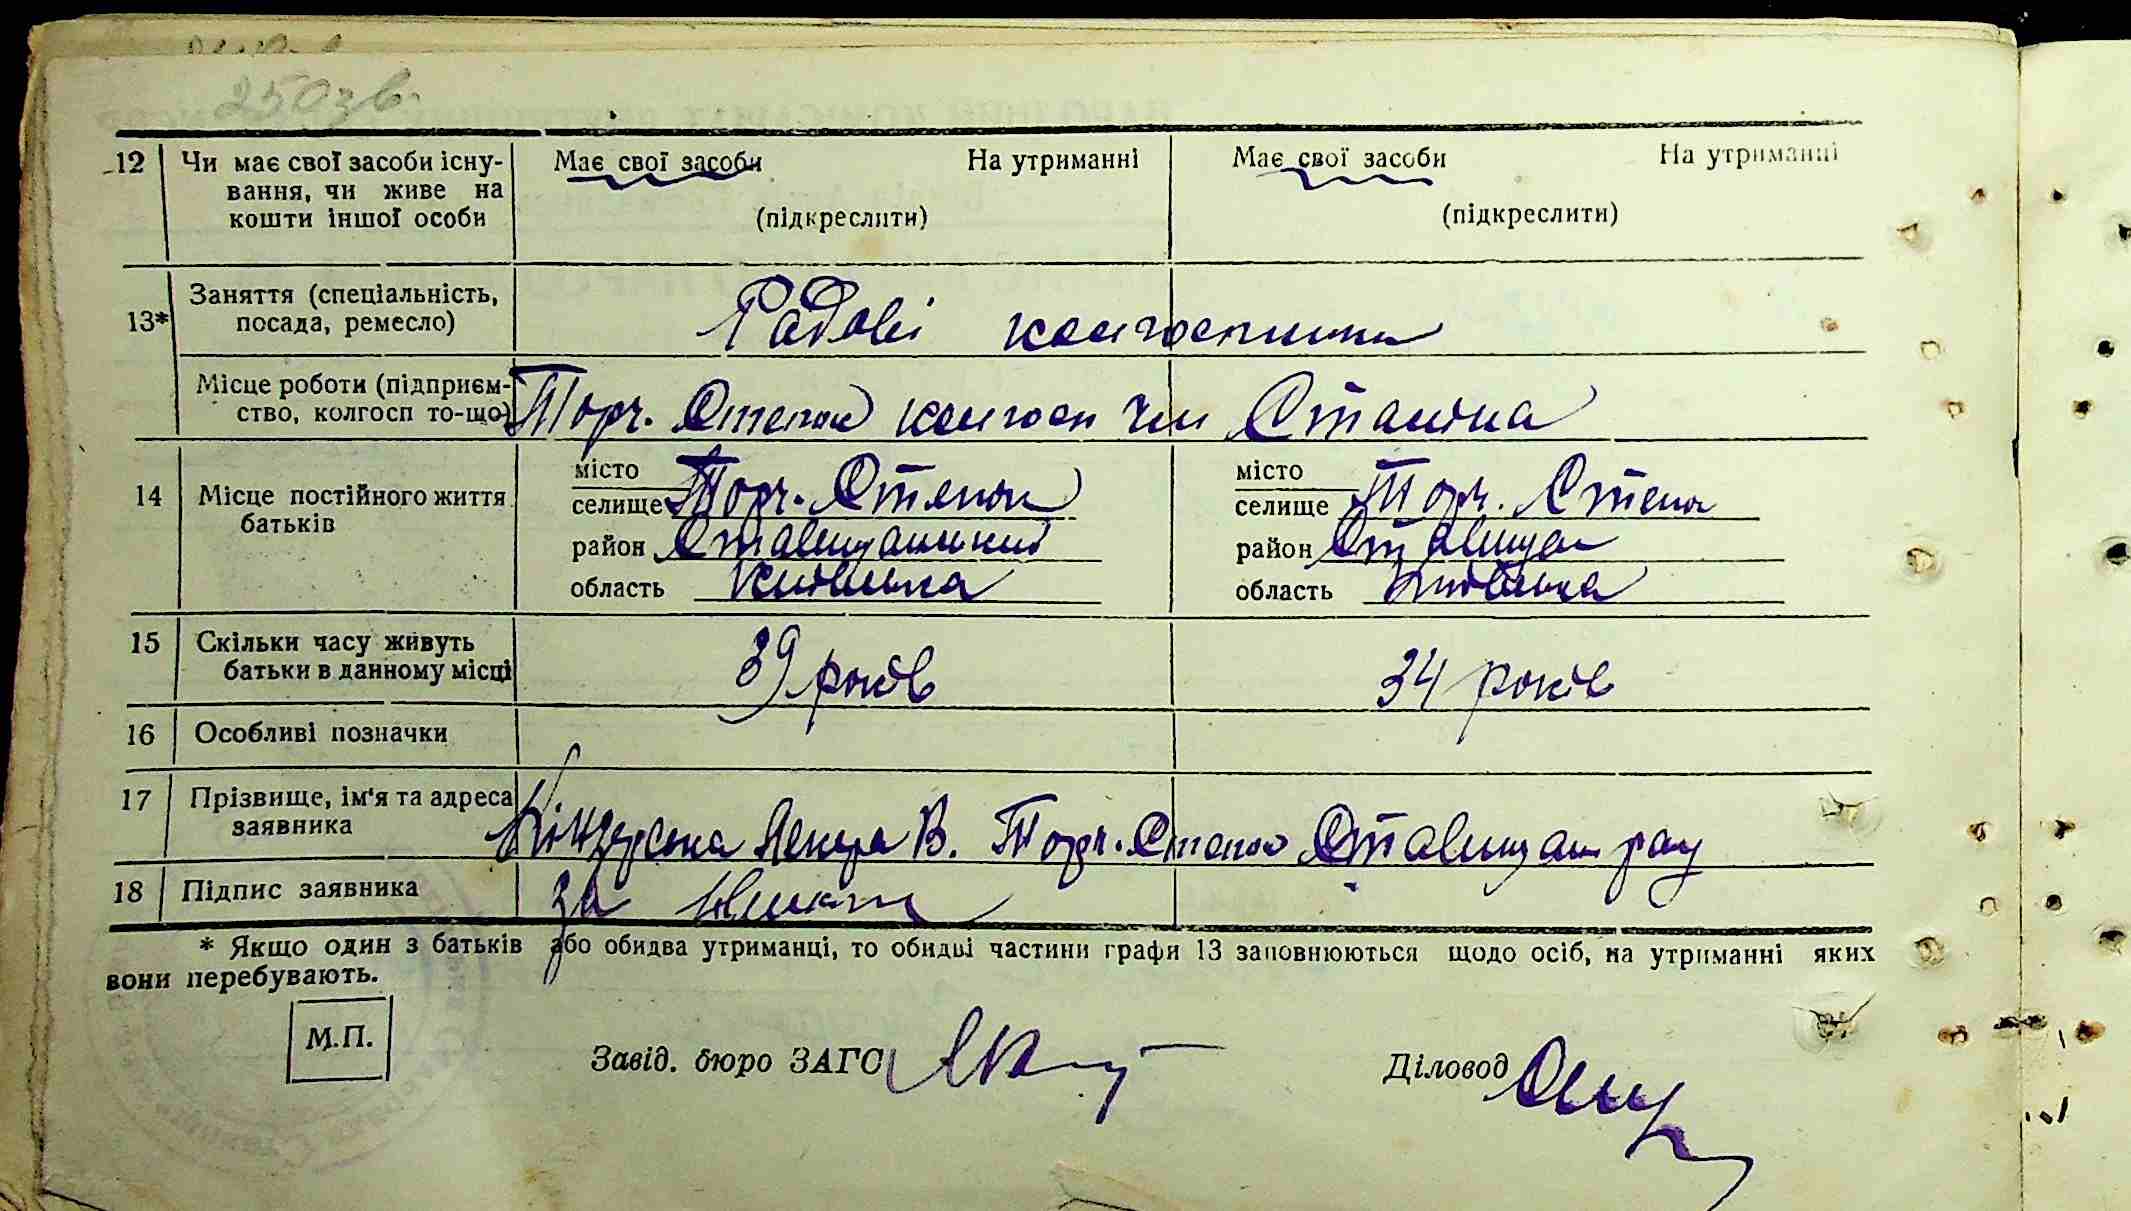 250зв.
12 Чи має свої засоби існу- Має свої засоби На утриманні Має свої засоби На утриманні
вання, чи живе на
кошти іншої особи (підкреслити) (підкреслити)
13* Заняття (спеціальність,
посада, ремесло) Рядові колгоспники
Місце роботи (підприєм-
ство, колгосп то-що) Торч. Степок колгосп Ім Сталіна
14 Місце постійного життя
батьків
місто місто
селище Торч. Степок селище Торч. Степок
район Ставищанський район Ставищан
область Київська область Київська
15 Скільки часу живуть
батьки в данному місці 39 років 34 років
16 Особливі позначки
17 Прізвище, ім'я та адреса
заявника В. Торч. Степок Ставищан рай
18 Підпис заявника за
* Якщо один з батьків або обидва утриманці, то обидві частини графи 13 заповнюються щодо осіб, на утриманні яких
вони перебувають.
М.П.
Завід. бюро ЗАГС Діловод